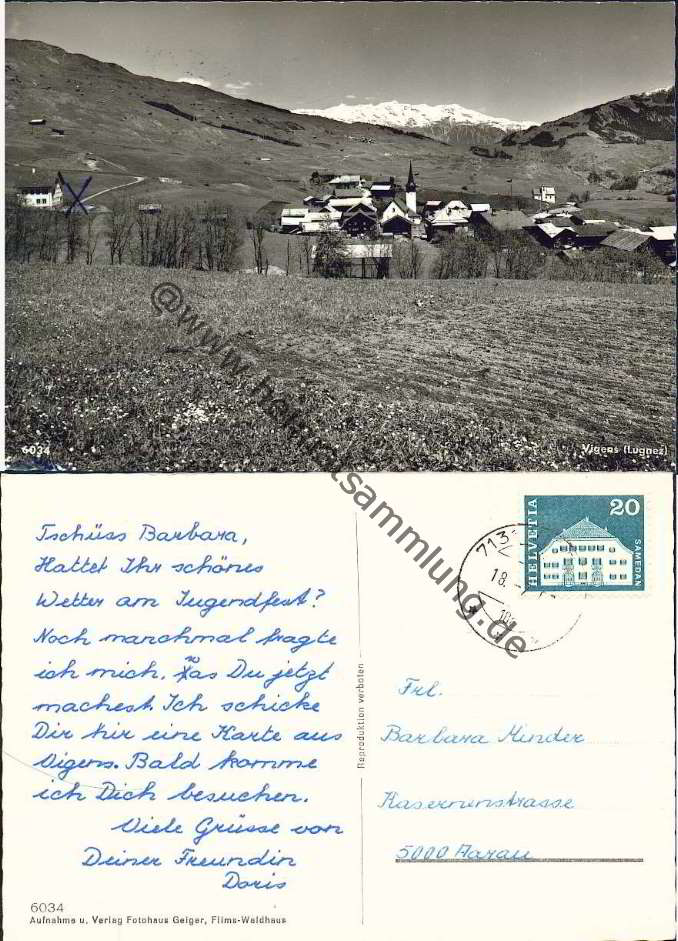 6034
Vigens (Lugnez)
@www.heimatsammlung.de
Tschüss Barbara,
Hattet Ihr schönes
Wetter am Jugendfest?
Noch manchmal fragte
ich mich, was Du jetzt
machest. Ich schicke
Dir hir eine Karte aus
Vigens. Bald komme
ich Dich besuchen.
Viele Grüsse von
Deiner Freundin
Doris
6034
Aufnahme u. Verlag Fotohaus Geiger, Flims-Waldhaus
Reproduktion verboten
HELVETIA
20
SAMEDAN
713
18
Frl.
Barbara Minder
Kasernenstrasse
5000 Aarau